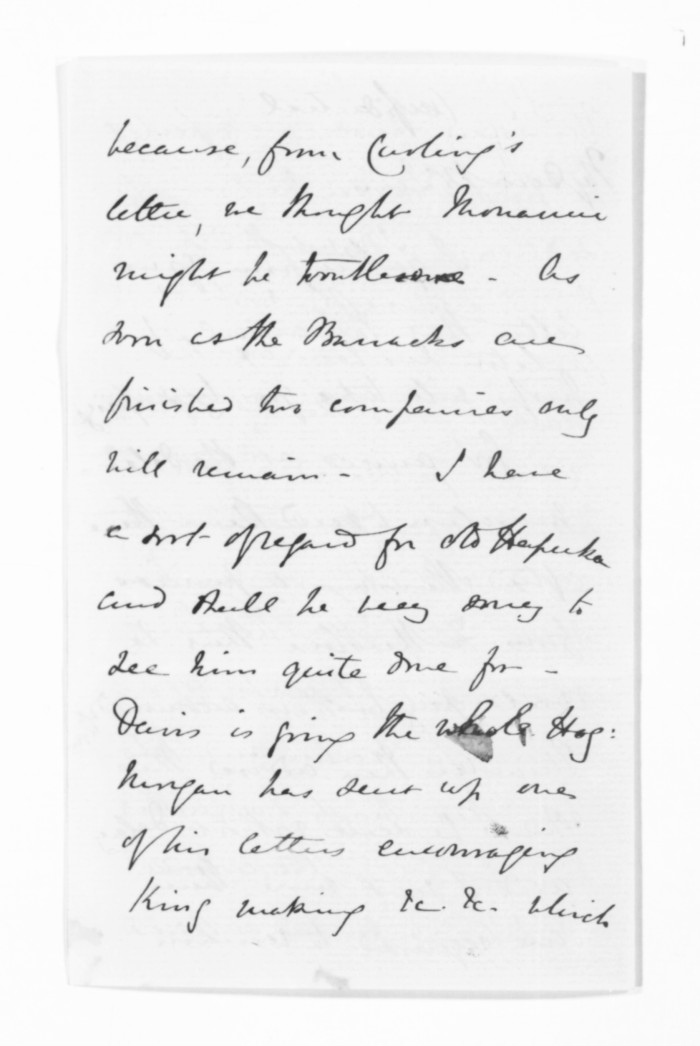 because, from Curling's
letter, we thought Moananui
might be troublesome - As
soon as the Barracks are
finished two companies only
will remain - I have
a sort of regard for old Hapuka
and shall be very sorry to
see him quite done for -
Davis is going the whole Hog:
Morgan has sent up one
of his letters encouraging
King making &c. &c. which